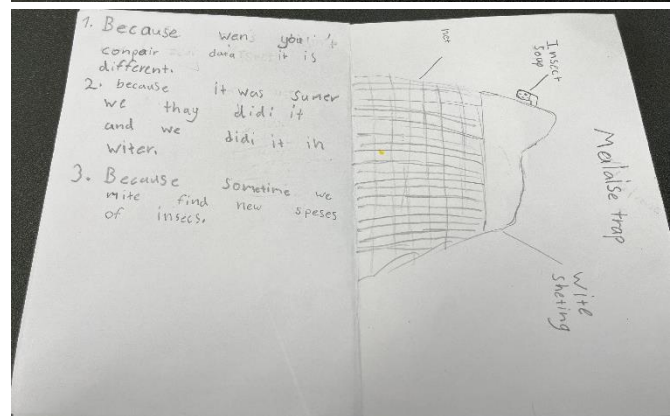 1. Because wens you
conpair data it is
different.
2. because it was sumer
we thay didi it
and we didi it in
witer.
3. Because sometime we
mite find new speses
of insecs.
Mallaise trap
Insect
soap
net
wite
sheting